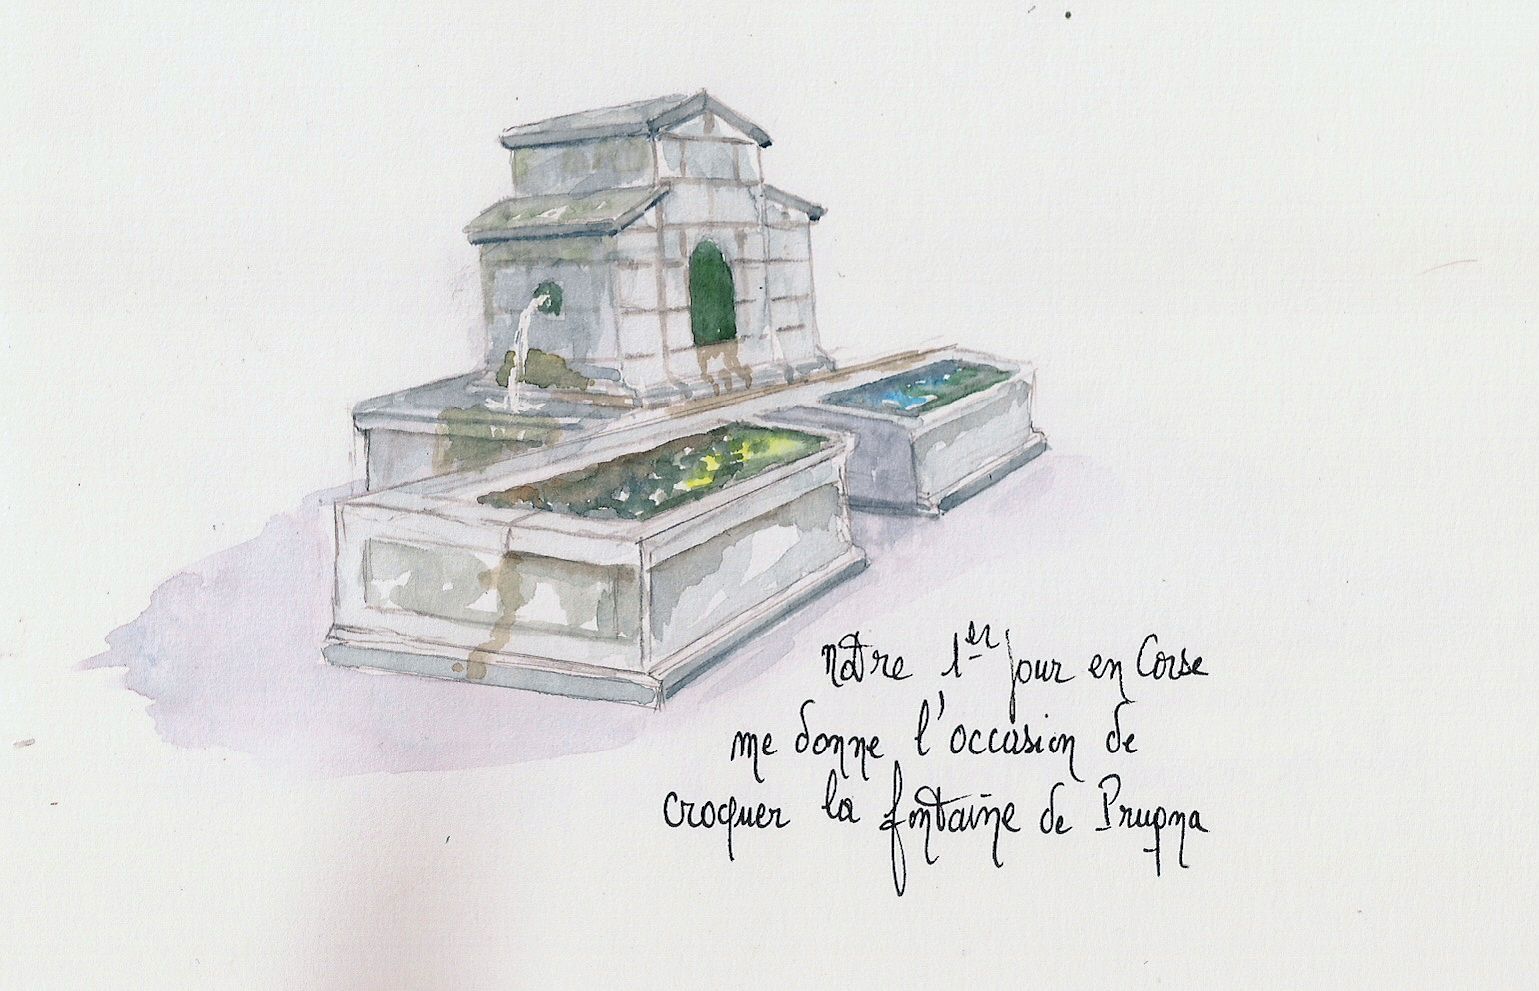 notre 1er jour en Corse
me donne l'occasion de
croquer la fontaine de Prupna